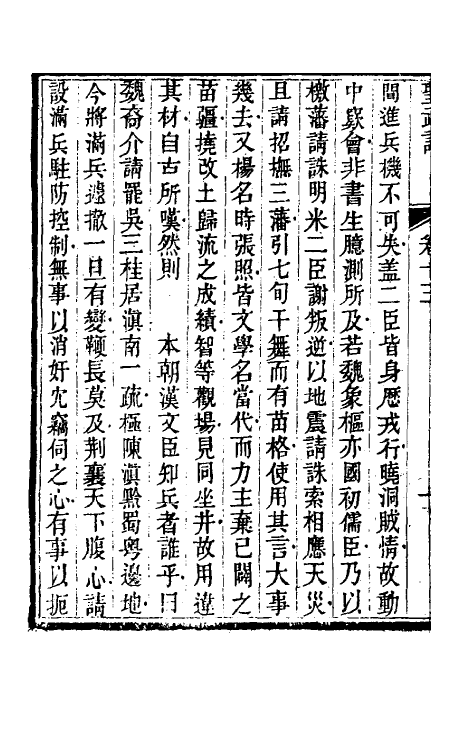 聖武記
卷十三
間進兵機不可失蓋二臣皆身歷戎行曉洞賊情故動
中窾會非書生臆測所及若魏象樞亦國初儒臣乃以
檄藩請誅明米二臣謝叛逆以地震請誅索相應天災
且請招撫三藩引七旬干舞而有苗格使用其言大事
幾去又楊名時張照皆文學名當代而力主棄已闢之
苗疆撓改土歸流之成績智等觀場見同坐井故用違
其材自古所嘆然則　本朝漢文臣知兵者誰乎曰
魏裔介請罷吳三桂居滇南一疏極陳滇黔蜀粵邊地
今將滿兵遽撤一旦有變鞭長莫及荆襄天下腹心請
設滿兵駐防控制無事以消奸宄竊伺之心有事以扼